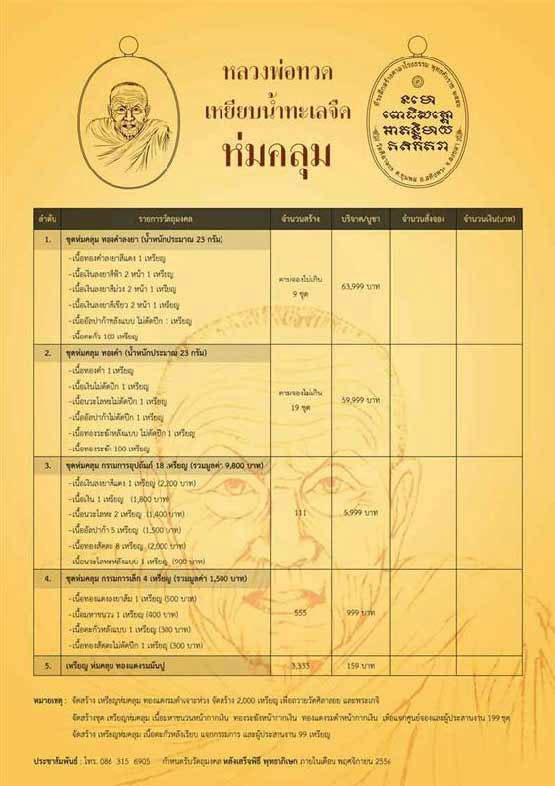 หลวงพ่อทวด
เหยียบน้ำทะเลจืด
ห่มคลุม
ลำดับ รายการวัตถุมงคล จำนวนสร้าง บริจาค/บูชา จำนวนสั่งจอง จำนวนเงิน(บาท)
1. ชุดห่มคลุม ทองคำลงยา (น้ำหนักประมาณ 23 กรัม)
-เนื้อทองคำลงยาสีแดง 1 เหรียญ
-เนื้อเงินลงยาสีฟ้า 2 หน้า 1 เหรียญ
-เนื้อเงินลงยาสีม่วง 2 หน้า 1 เหรียญ
-เนื้อเงินลงยาสีเขียว 2 หน้า 1 เหรียญ
-เนื้ออัลปาก้าหลังแบบ ไม่ตัดปีก 1 เหรียญ
-เนื้อตะกั่ว 103 เหรียญ
ตามจองไม่เกิน
9 ชุด
63,999 บาท
2. ชุดห่มคลุม ทองคำ (น้ำหนักประมาณ 23 กรัม)
-เนื้อทองคำ 1 เหรียญ
-เนื้อเงินไม่ตัดปีก 1 เหรียญ
-เนื้อนวะโลหะไม่ตัดปีก 1 เหรียญ
-เนื้ออัลปาก้าไม่ตัดปีก 1 เหรียญ
-เนื้อทองระฆังหลังแบบ ไม่ตัดปีก 1 เหรียญ
-เนื้อทองระฆัง 100 เหรียญ
ตามจองไม่เกิน
19 ชุด
59,999 บาท
3. ชุดห่มคลุม กรรมการอุปถัมภ์ 18 เหรียญ (รวมมูลค่า 9,800 บาท)
-เนื้อเงินลงยาสีแดง 1 เหรียญ (2,200 บาท)
-เนื้อเงิน 1 เหรียญ (1,800 บาท)
-เนื้อนวะโลหะ 2 เหรียญ (1,400 บาท)
-เนื้ออัลปาก้า 5 เหรียญ (1,500 บาท)
-เนื้อทองสัตตะ 8 เหรียญ (2,000 บาท)
-เนื้อนวะโลหะหลังแบบ 1 เหรียญ (900 บาท)
111
5,999 บาท
4. ชุดห่มคลุม กรรมการเล็ก 4 เหรียญ (รวมมูลค่า 1,500 บาท)
-เนื้อทองแดงลงยาส้ม 1 เหรียญ (500 บาท)
-เนื้อมหาชนวน 1 เหรียญ (400 บาท)
-เนื้อตะกั่วหลังแบบ 1 เหรียญ (300 บาท)
-เนื้อทองสัตตะไม่ตัดปีก 1 เหรียญ (300 บาท)
555
999 บาท
5. เหรียญ ห่มคลุม ทองแดงรมมันปู 3,333 159 บาท
หมายเหตุ : จัดสร้าง เหรียญห่มคลุม ทองแดงรมดำเจาะห่วง จัดสร้าง 2,000 เหรียญ เพื่อถวายวัดศิลาลอย และพระเกจิ
จัดสร้างชุด เหรียญห่มคลุม เนื้อมหาชนวนหน้ากากเงิน ทองระฆังหน้ากากเงิน ทองแดงรมดำหน้ากากเงิน เพื่อแจกศูนย์จองและผู้ประสานงาน 199 ชุด
จัดสร้าง เหรียญห่มคลุม เนื้อตะกั่วหลังเรียบ แจกกรรมการ และผู้ประสานงาน 99 เหรียญ
ประชาสัมพันธ์ : โทร. 086 315 6905 กำหนดรับวัตถุมงคล หลังเสร็จพิธี พุทธาภิเษก ภายในเดือน พฤศจิกายน 2556